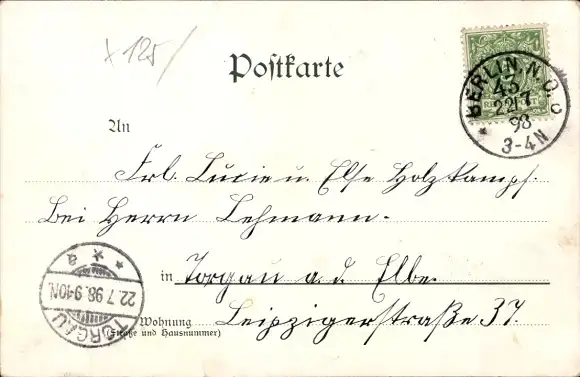 x 125/
Postkarte
BERLIN, N.O.
43
22/7
98
3-4N
c
An
Frl. Lucie u. Else Holzkampf.
bei Herrn Lehmann.
in Torgau a. d. Elbe
Wohnung Leipzigerstraße 37.
(Straße und Hausnummer)
TORGAU
22.7.98.9-10N.
a